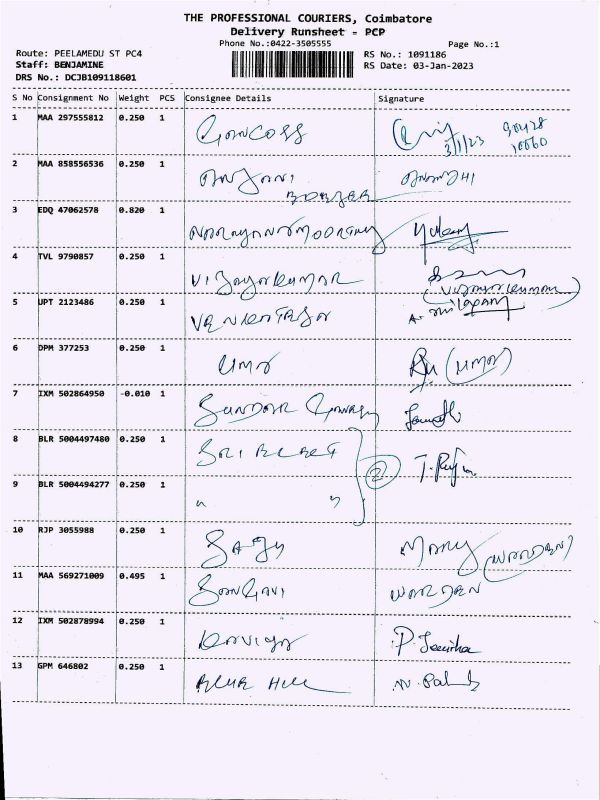 THE PROFESSIONAL COURIERS, Coimbatore
Delivery Runsheet - PCP
Phone No.:0422-3505555
Page No.:1
Route: PEELAMEDU ST PC4
RS No.: 1091186
Staff: BENJAMINE
RS Date: 03-Jan-2023
DRS No.: DCJB109118601
S No Consignment No Weight PCS Consignee Details Signature
1 MAA 297555812 0.250 1
3/1/23
2 MAA 858556536 0.250 1
3 EDQ 47062578 0.820 1
4 TVL 9790857 0.250 1 VIJAYAKUMAR
(VIJAYAKUMAR)
5 UPT 2123486 0.250 1
6 DPM 377253 0.250 1 UMA (UMA)
7 IXM 502864950 -0.010 1
8 BLR 5004497480 0.250 1
2
9 BLR 5004494277 0.250 1 " "
10 RJP 3055988 0.250 1 MARY (WARDEN)
11 MAA 569271009 0.495 1 WARDEN
12 IXM 502878994 0.250 1 KAVIYA
13 GPM 646802 0.250 1 BLUE HILL